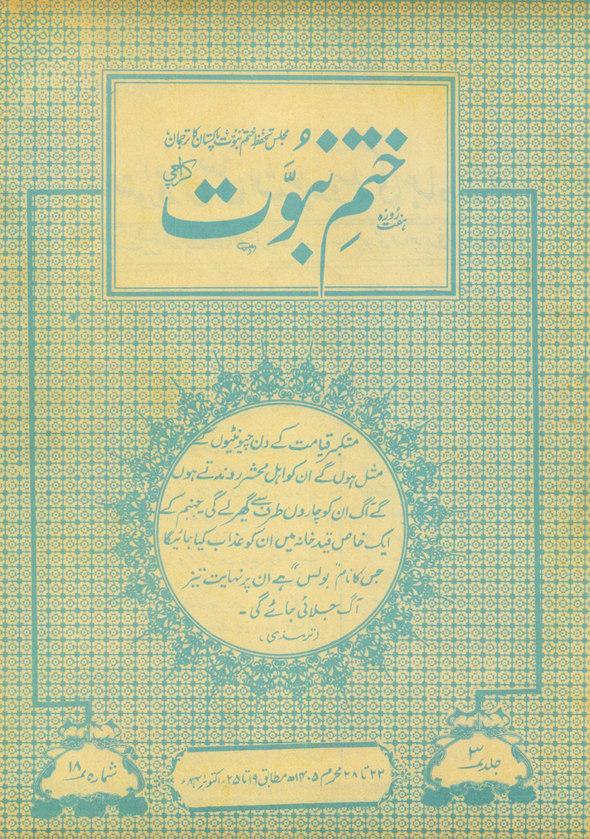 مجلس تحفظ ختم نبوت پاکستان کا ترجمان
ہفت روزہ
ختمِ نبوّت
کراچی
متکبر قیامت کے دن چیونٹیوں کے
مثل ہوں گے ان کو اہل محشر روندتے ہوں
گے آگ ان کو چاروں طرف سے گھیر لے گی۔ جہنم کے
ایک خاص قید خانہ میں ان کو عذاب کیا جائیگا
جس کا نام "بولس" ہے ان پر نہایت تیز
آگ جلائی جائے گی ۔
(ترمذی)
جلد ۳
شمارہ نمبر ۱۸
۲۲ تا ۲۸ محرم ۱۴۰۵ھ مطابق ۱۹ تا ۲۵ اکتوبر ۸۴ء